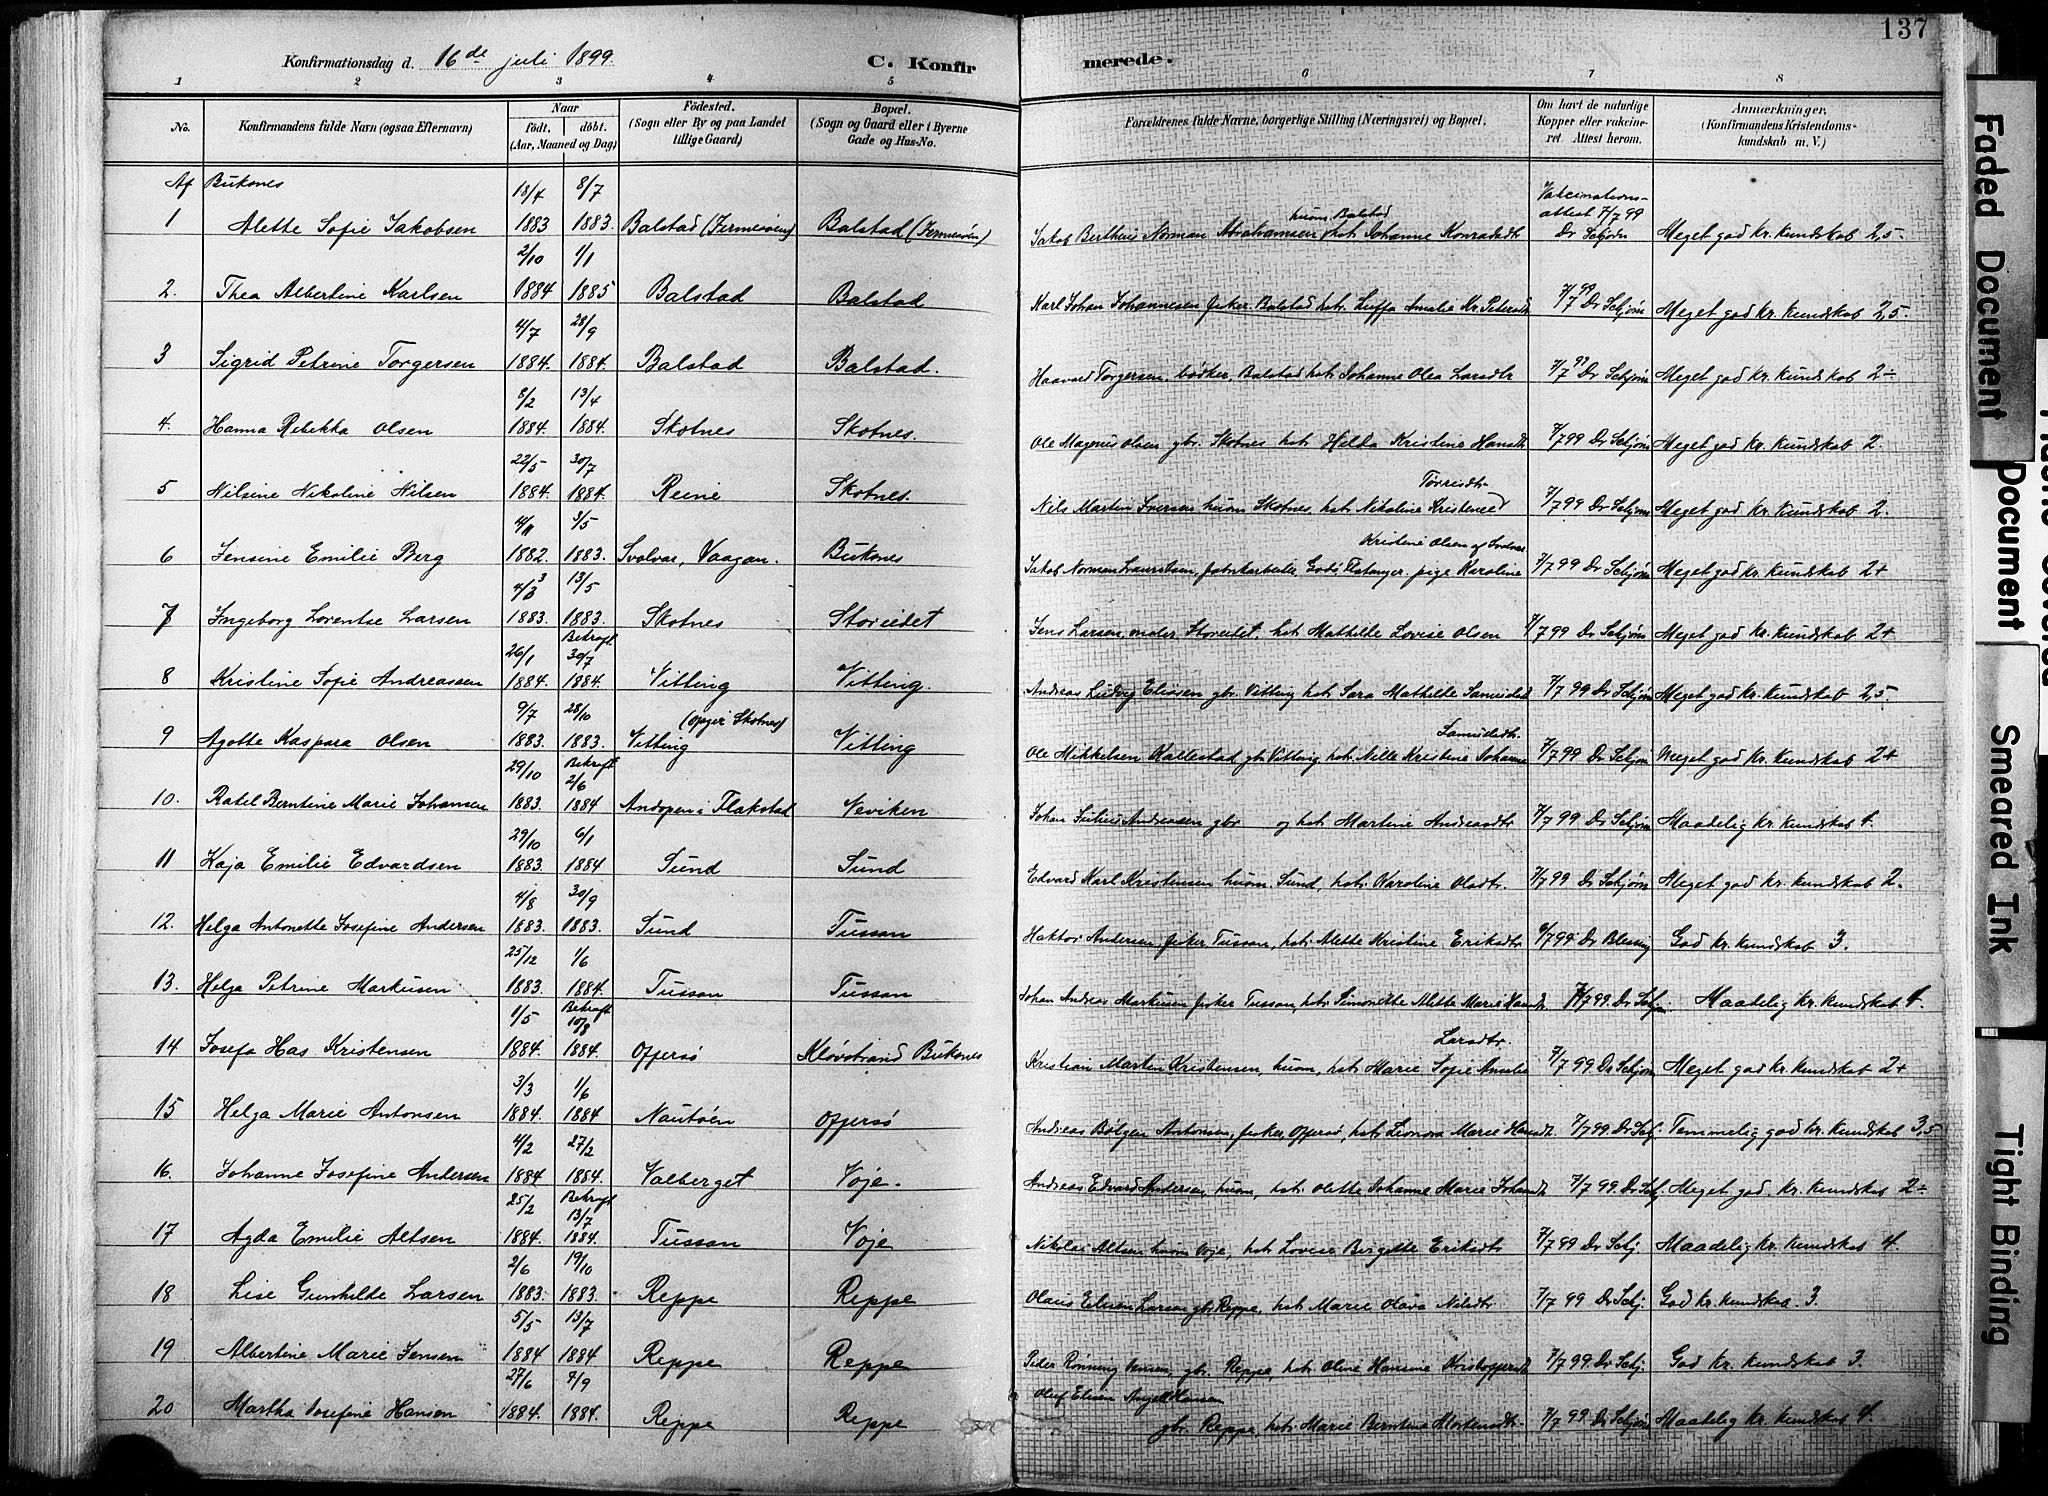 137
Konfirmationsdag d. 16de juli 1899. C. Konfirmerede.
1 2 3 4 5 6 7 8
No. Konfirmandens fulde Navn (ogsaa Efternavn) Naar født, døbt. (Aar, Maaned og Dag) Fødested. (Sogn eller By og paa Landet tillige Gaard) Bopæl. (Sogn og Gaard eller i Byerne Gade og Hus-No. Forældrenes fulde Navne, borgerlige Stilling (Næringsvei) og Bopæl. Om havt de naturlige Kopper eller vakcineret. Attest herom. Anmærkninger. (Konfirmandens Kristendomskundskab m. V.)
Af Buksnes
1 Alette Sofie Jakobsen 18/4 1883 8/7 1883. Balstad Balstad Jakob Norman Abrahamsen husm. Balstad hstr. Johanne Konradsdtr Vakcinationsattest 7/7 99 Dr Schjøn Meget god kr. kundskab 2,5
2. Thea Albertine Karlsen 2/10 1884 1/1 1885 Balstad Balstad Karl Johan Johannesen fisker Balstad hstr. Amalie 7/7 99 Dr Schjøn Meget god kr. kundskab 2,5
3 Sigrid Petrine Torgersen 4/7 1884. 28/9 1884. Balstad Balstad. Haavard Torgersen, bødker, Balstad hstr. Johanne Olea Larsdtr Dr Schjøn Meget god kr. kundskab 2÷
4. Hanna Rebekka Olsen 8/2 1884. 13/4 1884. Skotnes Skotnes. Ole Magnus Olsen gbr. Skotnes hstr. Helda Kristine Hansdtr 7/7 99 Dr Schjøn Meget god kr. kundskab 2.
5 Nilsine Nikoline Nilsen 22/5 1884. 30/7 1884. Reine Skotnes. Nils Martin Iversen husm Skotnes, hstr. Nikoline Kristense Torrisdtr 7/7 99 Dr Schjøn Meget god kr. kundskab 2.
6 Jensine Emilie Berg 4/11 1882. 3/5 1883. Svolvær, Vaagan. Buksnes Jakob Norman Lauritsen, fabrikarbeider, Flatanger, pige Karoline Kristine Olsen af Svolvær 7/7 99 Dr Schjøn Meget god kr. kundskab 2+
7 Ingeborg Lorentse Larsen 1883. 13/5 1883. Skotnes Storeidet Jens Larsen, maler, Storeidet, hst. Mathilde Lovise Olsen 7/7 99 Dr Schjøn Meget god kr. kundskab 2+
8 Kristine Sofie Andreassen 26/1 1884. Bekræft. 30/7 1884. Vitting Vitting. Andreas Ludvig Eliasen gbr. Vitting hstr. Sara Mathilde Samuelsdtr 7/7 99 Dr Schjøn Meget god kr. kundskab 2,5
9 Agotte Kaspara Olsen 9/7 1883. 28/10 1883. Vitting (opgir Skotnes) Vitting Ole Mikkelsen Kallestad gbr Vitting, hstr. Nille Kristine Johanne Samuelsdtr. 7/7 99 Dr Schjøn Meget god kr. kundskab 2+
10. Rakel Berntine Marie Johansen 29/10 1883. Bekræft. 2/6 1884 Andopen i Flakstad Neviken Johan Julius Andreasen gbr og hstr. Martine Andreasdtr. 7/7 99 Dr Schjøn Maadelig kr. kundskab 4.
11 Kaja Emilie Edvardsen 29/10 1883. 6/1 1884 Sund Sund Edvard Karl Kristensen husm. Sund, hstr. Karoline Olsdtr. 7/7 99 Dr Schjøn Meget god kr. kundskab 2.
12. Helga Antonette Josefine Andersen 4/8 1883. 30/9 1883. Sund Tussan Haktor Andersen, fisker, Tussan, hstr. Alette Kristine Eriksdtr. 6/7 99 Dr Blessing God kr. kundskab 3.
13. Helga Petrine Markusen 25/12 1883. 1/6 1884. Tussan Tussan Johan Andreas Markusen fisker Tussan, hstr. Simonette Mette Marie Hansdtr. 7/7 99. Dr Schjøn. Maadelig kr. kundskab 4.
14 Josefa Has Kristensen 1/5 1884. Bekræft 10/8 1884. Offersø Kløvstrand Buksnes Kristian Martin Kristensen, husm, hstr. Marie Sofie Amalie Larsdtr. 7/7 99. Dr Schjøn Meget god kr. kundskab 2+
15 Helga Marie Antonsen 3/3 1884. 1/6 1884 Nautøen Offersø Andreas Bølgen Antonsen, fisker, Offersø, hstr. Leonora Marie Hansdtr. 7/7 99. Dr Schj. Temmelig god kr. kundskab 3,5
16. Johanne Josefine Andersen 4/2 1884 27/2 1884. Valberget Voje. Andreas Edvard Andersen, husm, hstr. Olette Johanne Marie Johansdtr 7/7 99. Dr Schj Meget god. kr. kundskab 2÷
17 Agda Emilie Altsen 25/2 1884. Bekræft 13/7 1884. Tussan Voje Nikolai Altsen husm Voje, hstr. Lovise Birgitte Eriksdtr 7/7 99 Dr Schj. Maadelig kr. kundskab 4.
18 Lise Gunhilde Larsen 2/6 1883. 19/10 1883. Reppe Reppe Olaus Elisen Larsen gbr. Reppe, hstr. Marie Olava Nilsdtr. 7/7 99 Dr Schj. God kr. kundskab. 3.
19 Albertine Marie Jensen 5/5 1884 13/7 1884 Reppe Reppe Peder Rønning Jensen, gbr. Reppe, hstr. Oline Hansine Kristoffersdtr 7/7 99. Dr Schj. God kr. kundskab 3.
20 Martha Josefine Hansen 27/6 1884. 7/9 1884. Reppe Reppe Oluf Elisen Angell Hansen gbr. Reppe, hstr. Marie Berntine Mortensdtr. 7/7 99 Dr Schjøn Maadelig kr. kundskab 4.
Faded Document
Document
Smeared Ink
Tight Binding